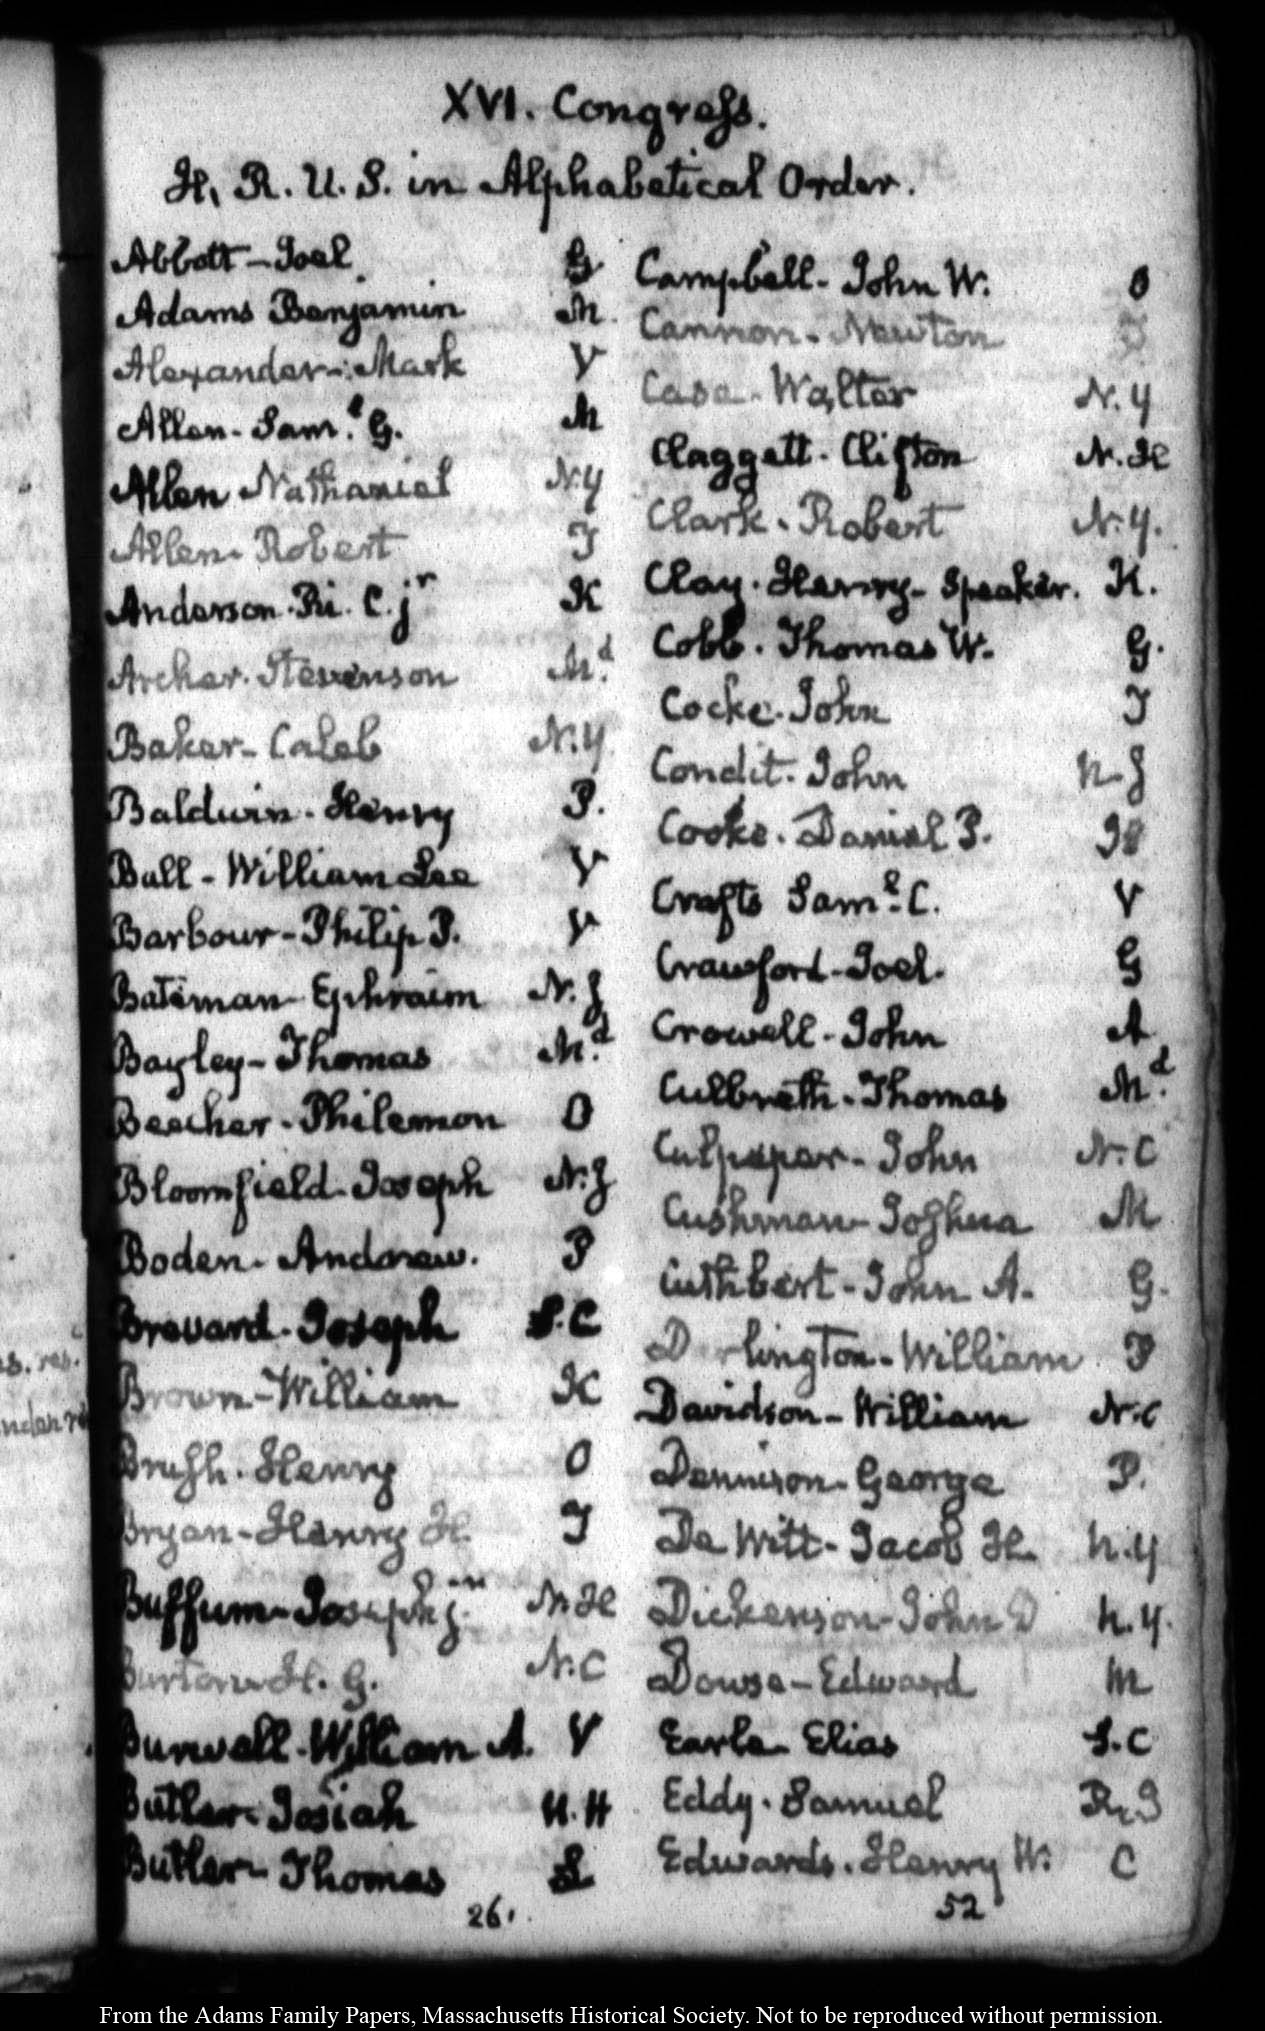 XVI. Congress.
H. R. U. S. in Alphabetical Order.
Abbott - Joel G
Adams Benjamin M.
Alexander - Mark V
Allen - Saml. G. M
Allen Nathaniel N.Y
Allen - Robert T
Anderson. Ri. C. jr K
Archer. Stevenson Md.
Baker - Caleb N.Y
Baldwin - Henry P.
Ball - William Lee V
Barbour - Philip P. V
Bateman - Ephraim N.J
Bayley - Thomas Md.
Beecher - Philemon O
Bloomfield - Joseph N.J
Boden - Andrew. P
Brevard - Joseph S.C
Brown - William K
Brush. Henry O
Bryan - Henry H. T
Buffum - Joseph jun N.H
Burton H. G. N.C
Burwell - William A. V
Butler - Josiah N.H
Butler - Thomas L
26.
Campbell - John W. O
Cannon - Newton T
Case - Walter N.Y
Claggett - Clifton N.H
Clark - Robert N.Y.
Clay - Henry - Speaker. K.
Cobb. Thomas W. G.
Cocke. John T
Condit. John N.J
Cooke. Daniel P. Il
Crafts Saml. C. V
Crawford - Joel. G
Crowell - John A
Culbreth - Thomas Md.
Culpeper - John N.C
Cushman - Joshua M
Cuthbert - John A. G.
Darlington - William P
Davidson - William N.C
Dennison - George P.
De Witt - Jacob H. N.Y
Dickenson - John D N.Y.
Dowse - Edward M
Earle Elias S.C
Eddy. Samuel R.I
Edwards. Henry W. C
52
es. res.
From the Adams Family Papers, Massachusetts Historical Society. Not to be reproduced without permission.